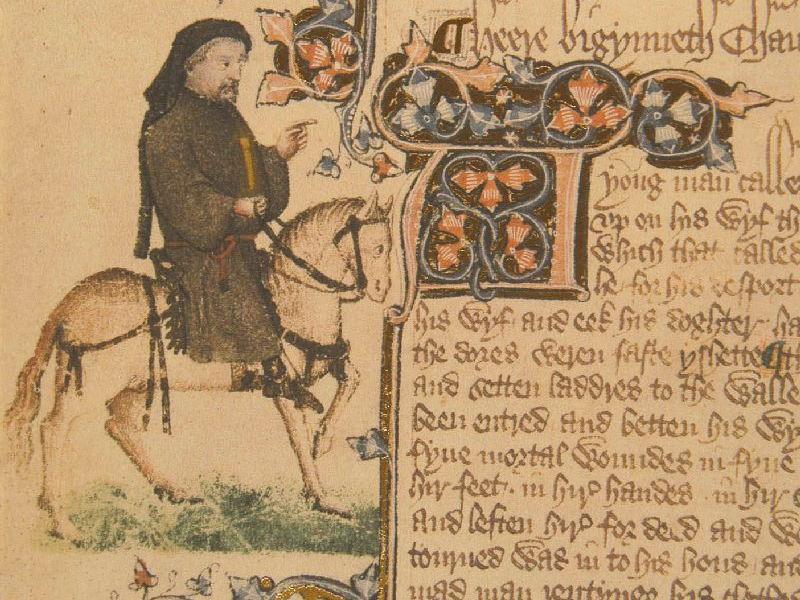 heere bigynneth Chau
A
yong man calle
vp on his wyf th
which that called
he for his desport
his wyf and eek his doghter ha
the dores weren faste yshette th
and setten laddres to the walle
been entred and betten his wy
fyue mortal woundes in fyue
hir feet in hir handes in hir
and leften hir for deed and w
tourned was in to his hous and
mad man rentynge his clothes